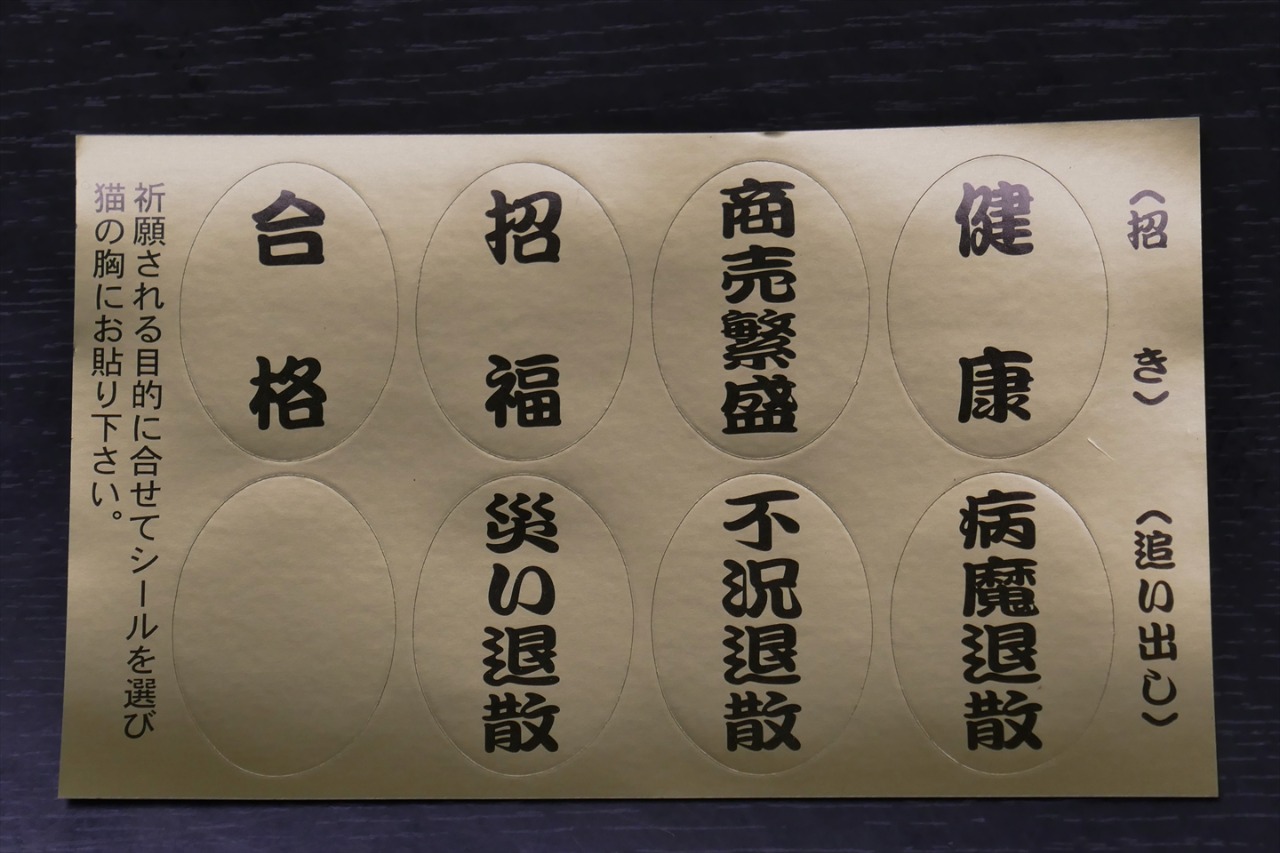 （招き）
（追い出し）
健康
商売繁盛
招福
合格
病魔退散
不況退散
災い退散
祈願される目的に合せてシールを選び
猫の胸にお貼り下さい。